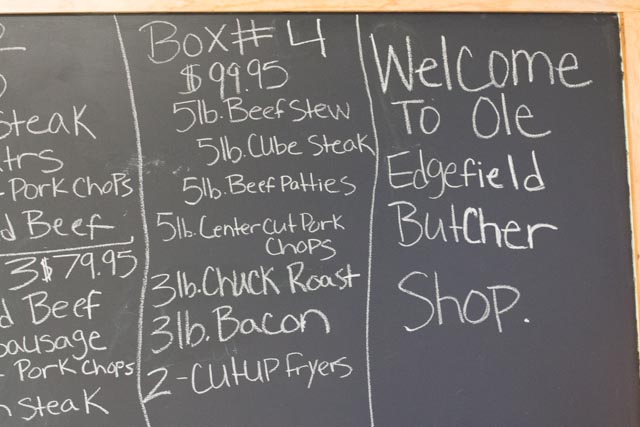 2
Steak
Pork Chops
d Beef
3 $79.95
d Beef
Sausage
Pork Chops
Steak
Box # 4
$99.95
5lb. Beef Stew
5lb. Cube Steak
5lb. Beef Patties
5lb. Center cut Pork
Chops
3lb. Chuck Roast
3lb. Bacon
2 - Cut up Fryers
Welcome
To Ole
Edgefield
Butcher
Shop.